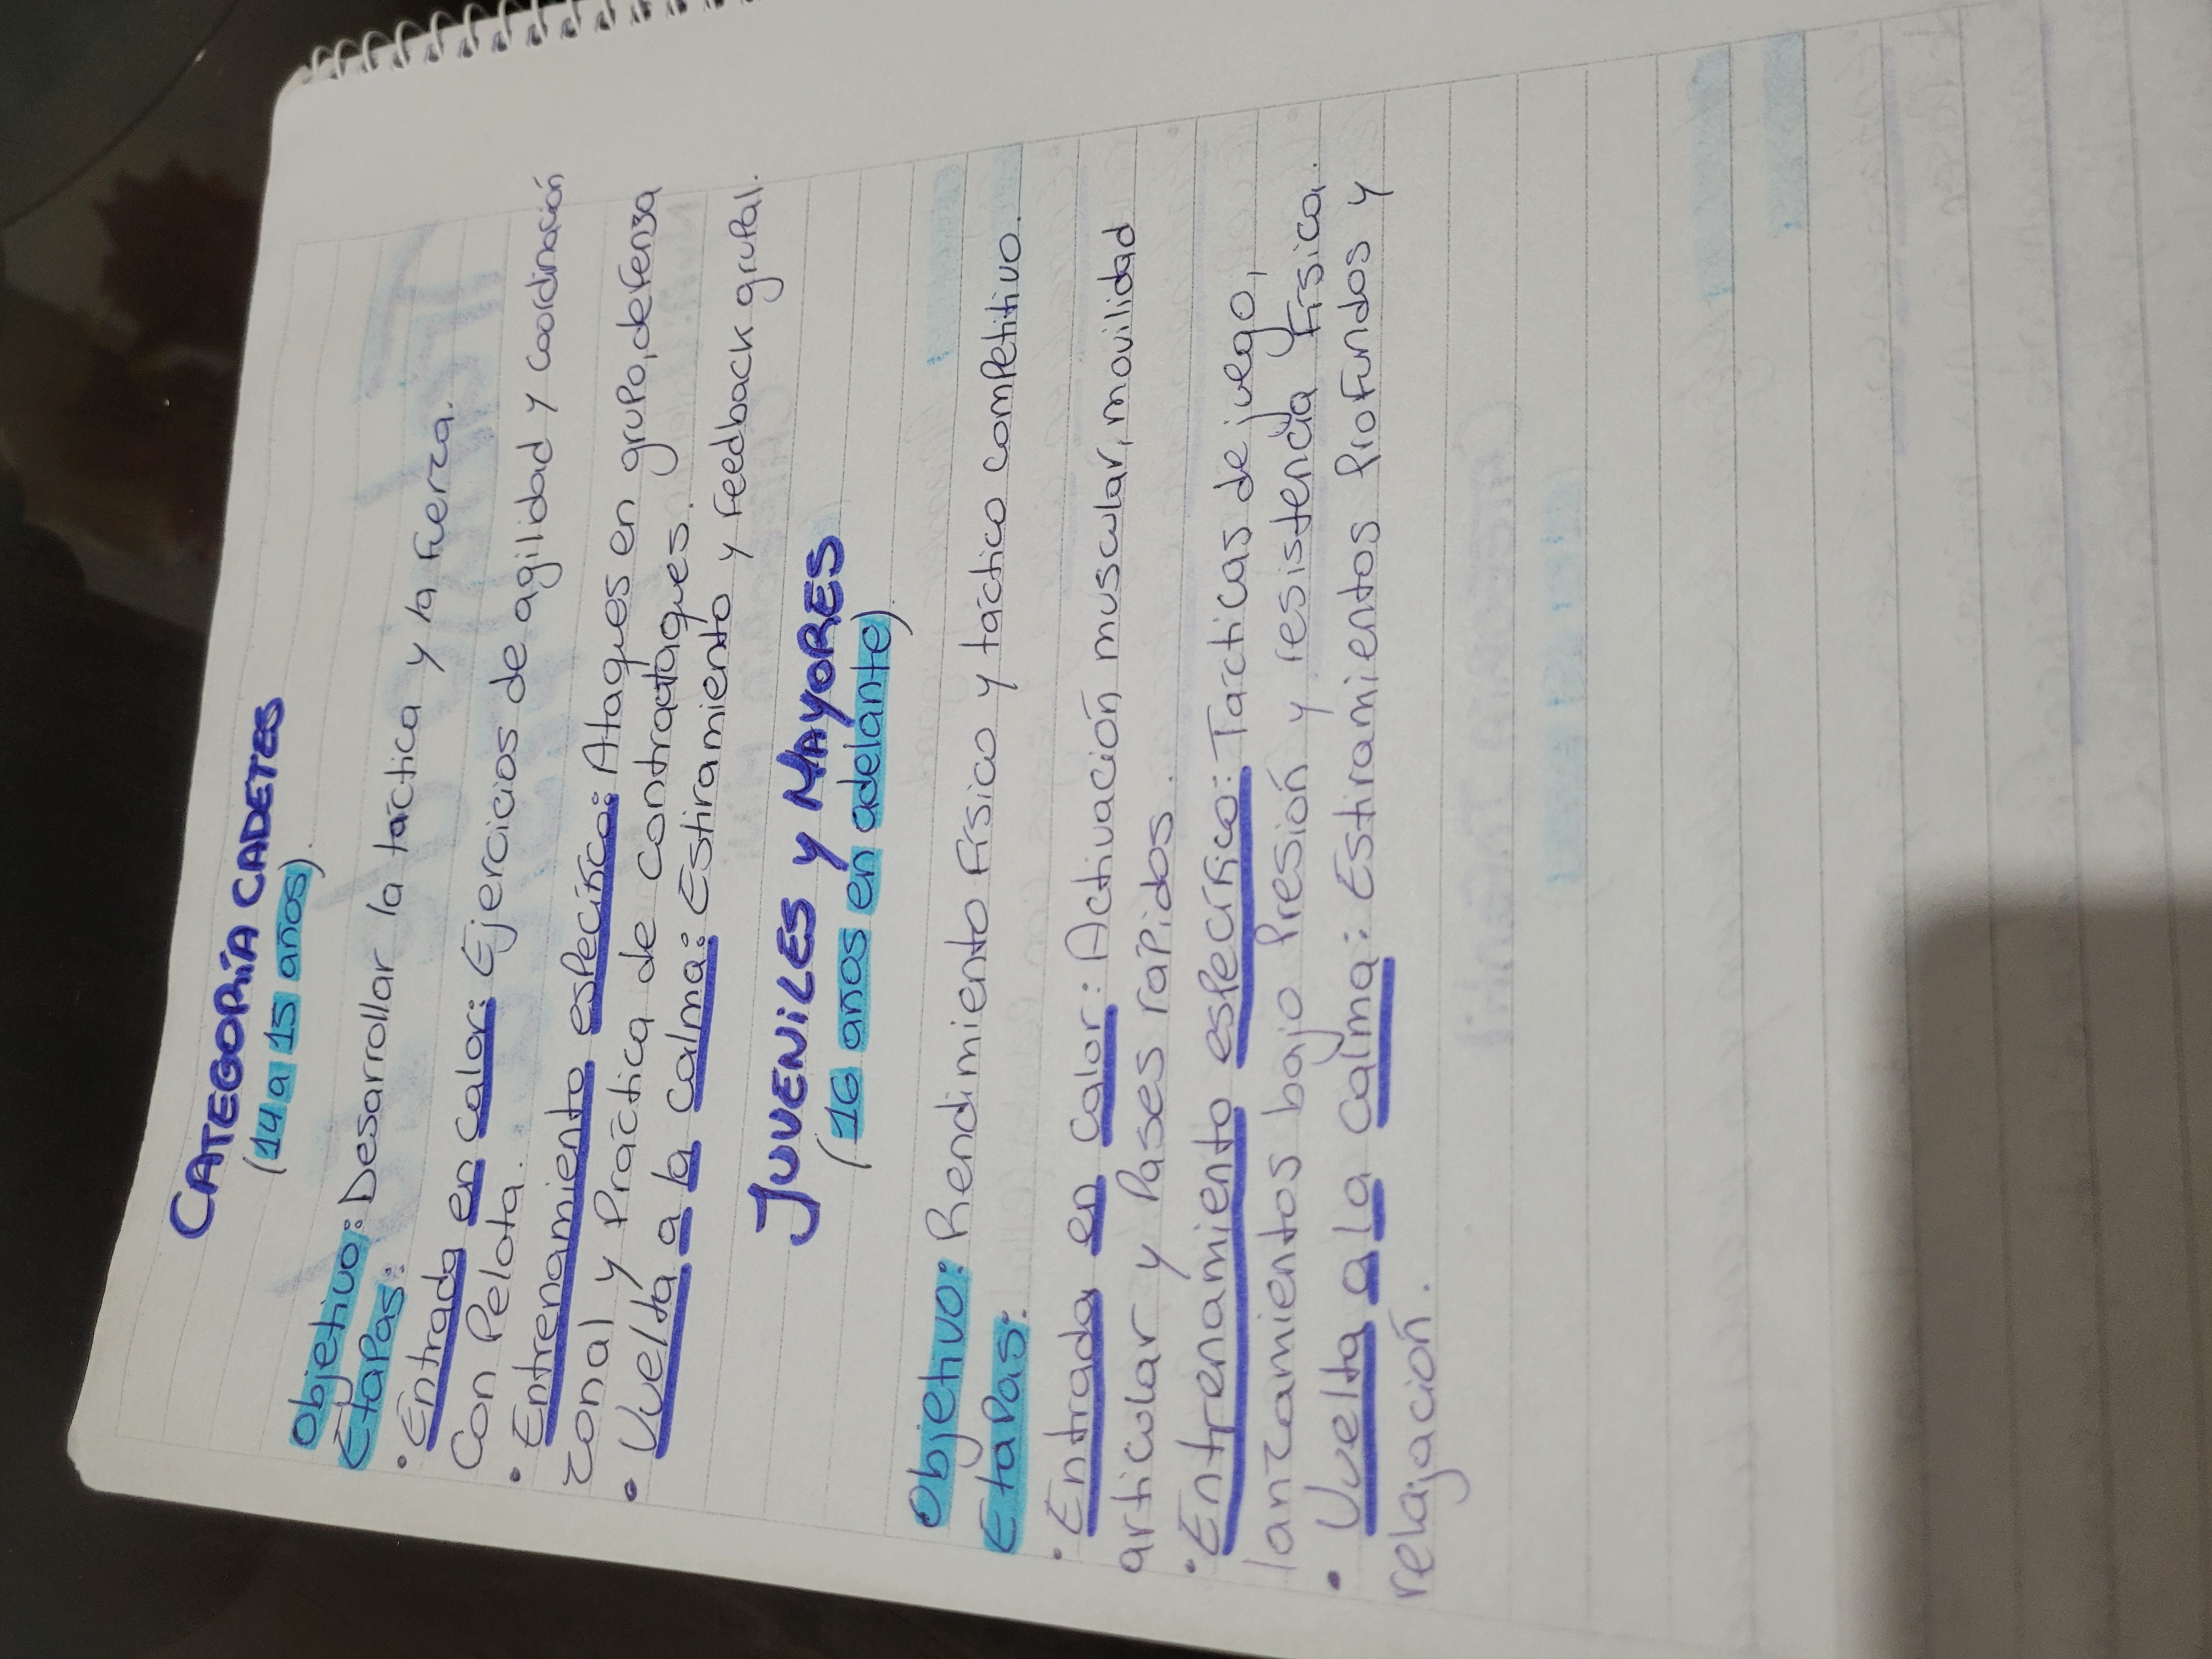 CATEGORÍA CADETES
(14 a 15 años).
Objetivo: Desarrollar la táctica y la fuerza.
Etapas:
• Entrada en calor: Ejercicios de agilidad y coordinación
con pelota.
• Entrenamiento específico: Ataques en grupo, defensa
zonal y práctica de contraataques.
• Vuelta a la calma: Estiramiento y feedback grupal.
JUVENILES Y MAYORES
(16 años en adelante).
Objetivo: Rendimiento físico y táctico competitivo.
Etapas:
• Entrada en calor: Activación muscular, movilidad
articular y pases rápidos.
• Entrenamiento específico: Tácticas de juego,
lanzamientos bajo presión y resistencia física.
• Vuelta a la calma: Estiramientos profundos y
relajación.